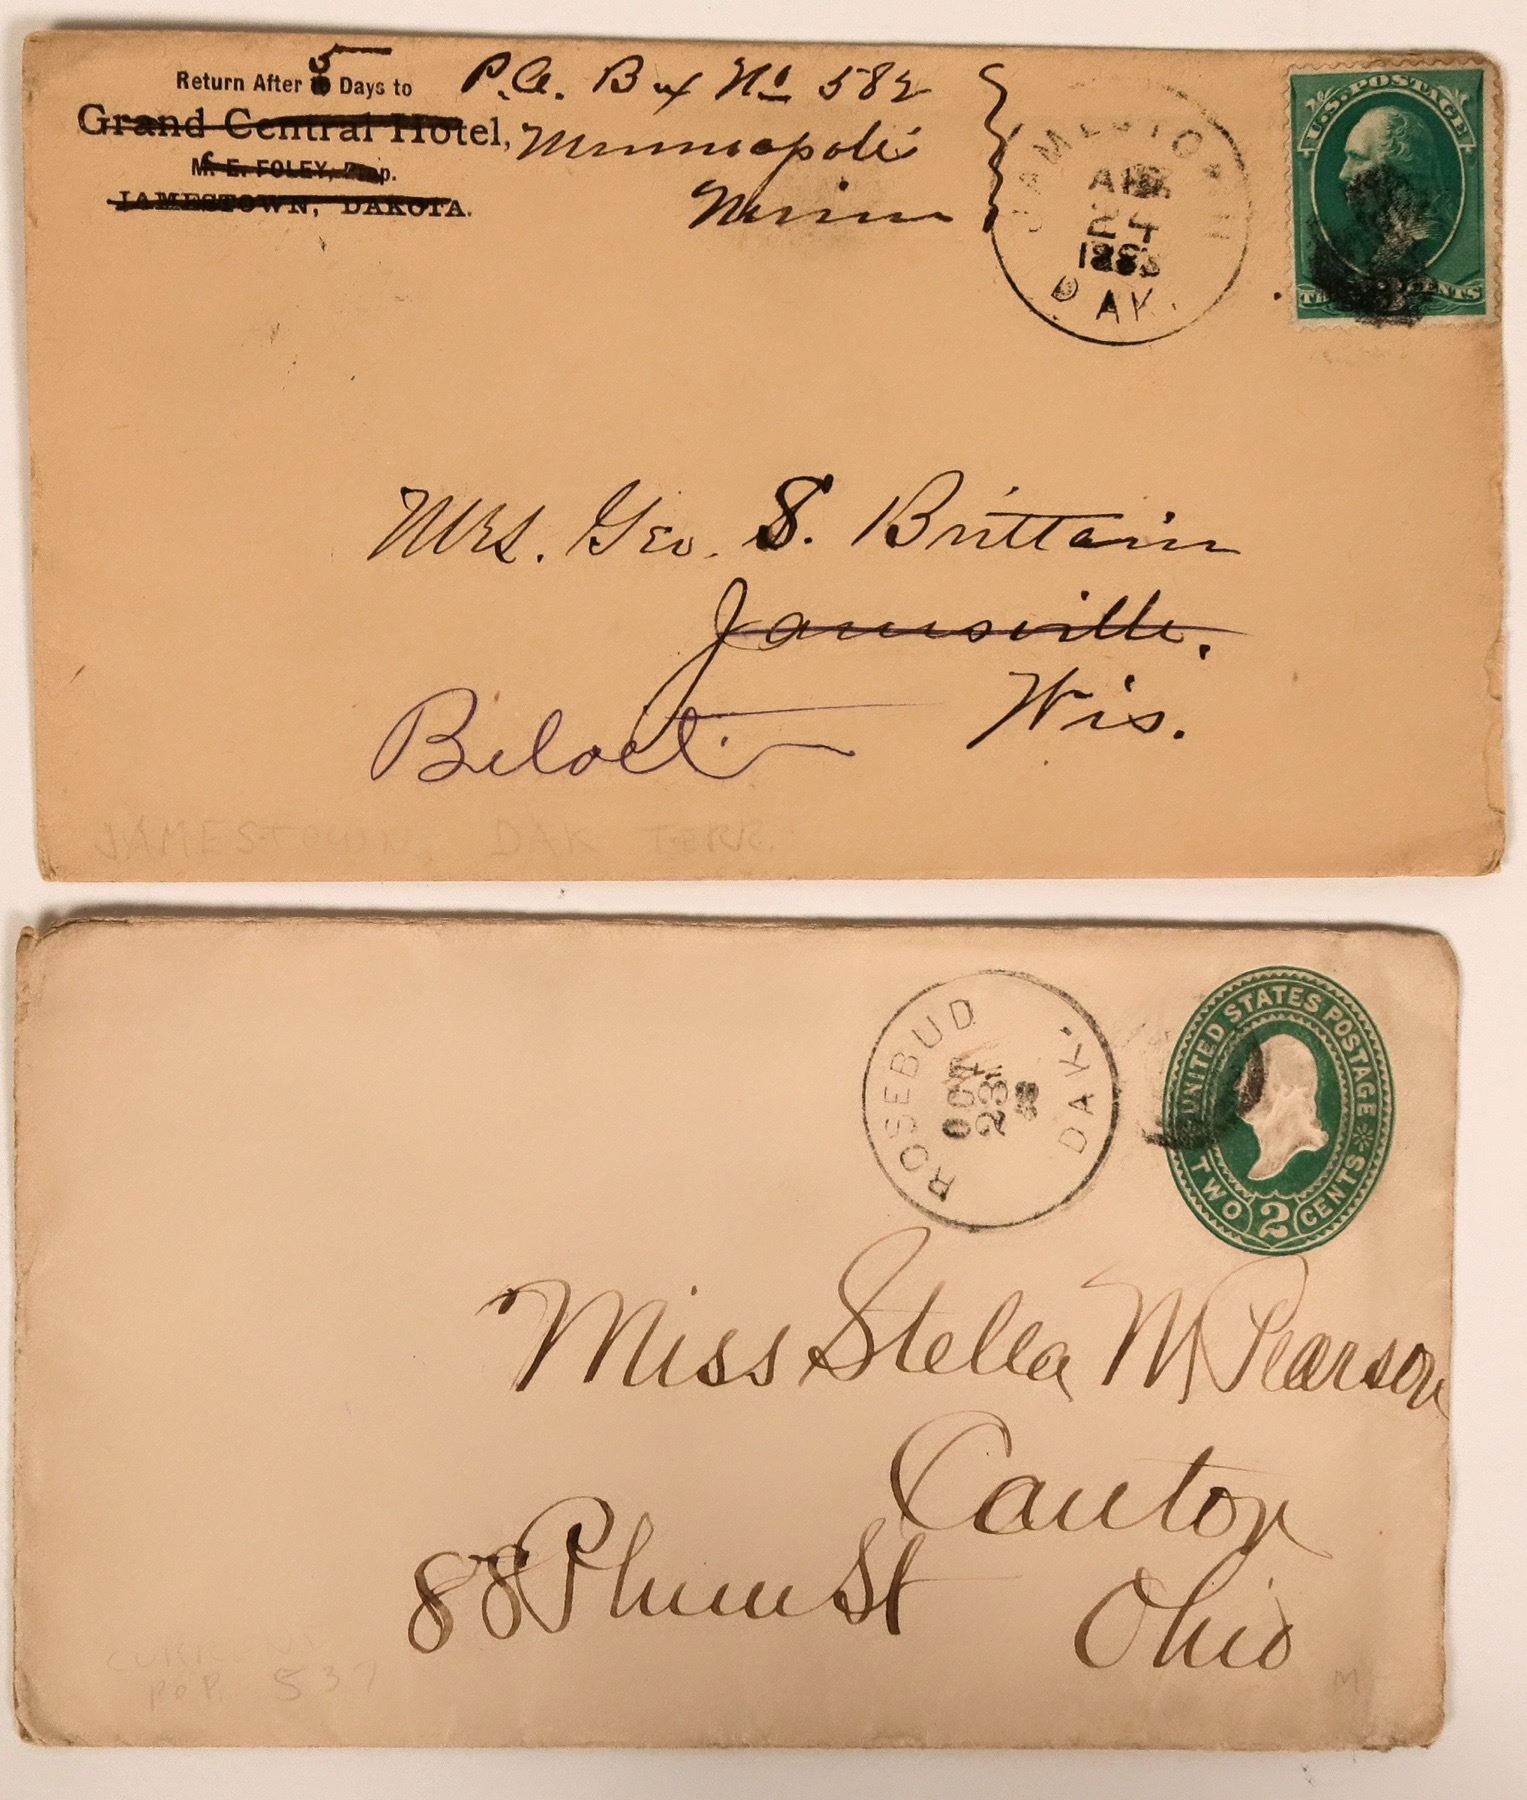 5
Return After Days to
P.O. Box No 582
Grand Central Hotel,
Minneapolis
M. E. FOLEY, Prop.
Minn
JAMESTOWN, DAKOTA.
JAMESTOWN
APR
24
1883
DAK.
U.S. POSTAGE
THREE CENTS
Mrs. Geo. S. Brittain
Janesville,
Wis.
Beloit
JAMESTOWN, DAK TERR.
ROSEBUD
OCT
23
DAK.
UNITED STATES POSTAGE
TWO 2 CENTS
Miss Stella M Pearson
Canton
88 Plum St
Ohio
CURRENT
POP. 537
M